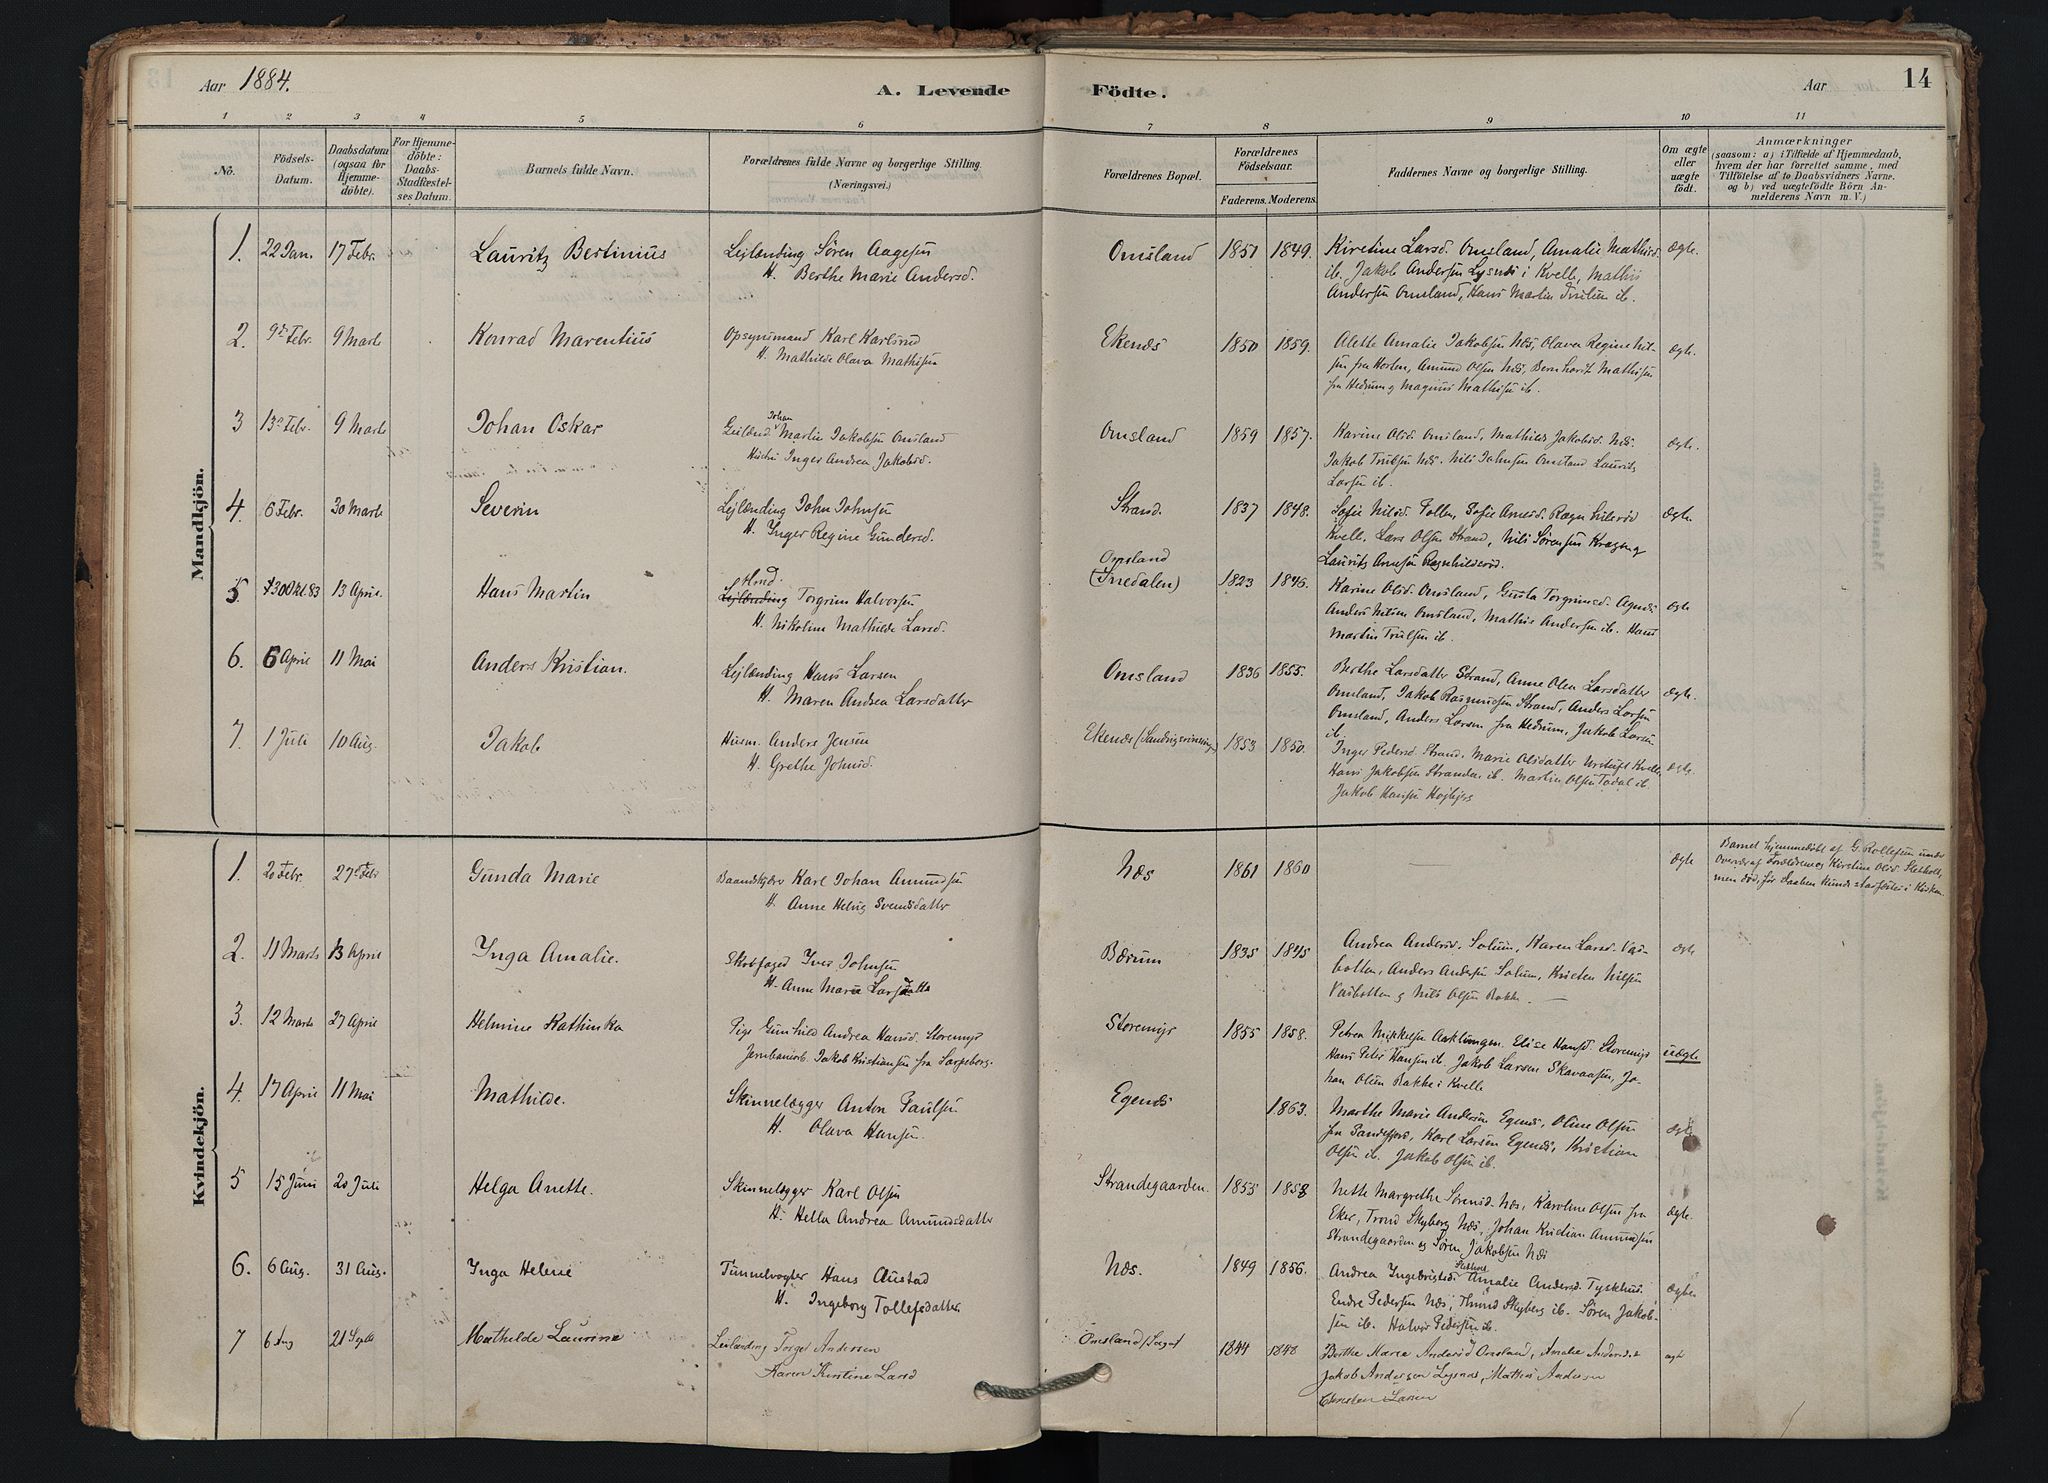 Aar 1884.
A. Levende
Födte.
Aar
14
1 2 3 4 5 6 7 8 9 10 11
No.
Födsels-
Datum.
Daabsdatum
(ogsaa for
Hjemme-
döbte).
For Hjemme-
döbte:
Daabs-
Stadfæstel-
ses Datum.
Barnets fulde Navn.
Forældrenes fulde Navne og borgerlige Stilling.
(Næringsvei.)
Forældrenes Bopæl.
Forældrenes
Födselsaar.
Faderens. Moderens.
Faddernes Navne og borgerlige Stilling.
Om ægte
eller
uægte
födt.
Anmærkninger
(saasom: a) i Tilfælde af Hjemmedaab,
hvem der har forrettet samme, med
Tilföielse af to Daabsvidners Navne.
og b) ved uægtefödte Börn An-
melderens Navn m. V.)
Mandkjön.
1. 22 Jan. 17 Febr. Lauritz Bertinius Lejlænding Sören Aagesen Omsland 1851 1849. Kirstine Larsd. Omsland, Amalie Mathisd. ægte.
H. Berthe Marie Andersd. ib. Jakob Andersen Lysnes i Kvelle, Mathis
Andersen Omsland, Hans Martin Trulsen ib.
2. 9de Febr. 9 Marts Konrad Marentius Opsynsmand Karl Karlsrud Ekenæs 1850 1859. Alette Amalie Jakobsen Næs, Olava Regine Nil- ægte.
H. Mathilde Olava Mathisen sen fra Horten, Amund Olsen Næs, Bernhard Mathisen
fra Hedrum og Magnus Mathisen ib.
3 13de Febr. 9 Marts Johan Oskar Johan
Leilænd. Martin Jakobsen Omsland Omsland 1859 1857. Karine Olsd. Omsland, Mathilde Jakobsd. Næs. ægte.
Hustru Inger Andrea Jakobsd. Jakob Trulsen Næs. Nils Johnsen Omsland Laurits
Larsen ib.
4. 6 Febr. 30 Marts Severin Lejlænding John Johnsen Strand. 1837 1848. Sofie Nilsd. Foller, Sofie Arnesd. ægte.
H. Inger Regine Gundersd. Kvelle. Lars Olsen Strand, Nils Sörensen
Laurits Arnesen
5. 30 Okt. 83 13 April. Hans Martin Hmd.
Lejlænding Torgrim Halvorsen Omsland
1823 1846. Karine Olsd. Omsland, Gusta Torgrimsd. Agnes ægte
H. Nikoline Mathilde Larsd. Anders Nilsen Omsland, Mathis Andersen ib. Hans
Martin Trulsen ib.
6. 6 April 11 Mai Anders Kristian. Lejlænding Hans Larsen Omsland 1836 1855. Berthe Larsdatter Strand, Anne Olea Larsdatter ægte.
H. Maren Andrea Larsdatter Omsland, Jakob Rasmussen Strand, Anders Larsen
Omsland, Anders Larsen fra Hedrum, Jakob Larsen
ib.
7. 1 Juli 10 Aug. Jakob Husm. Anders Jensen Ekenæs 1853 1850. Inger Pedersd. Strand. Marie Olsdatter Kvelle, ægte.
H. Grethe Johnsd. Hans Jakobsen Stranden ib. Martin Olsen ib.
Jakob Hansen
Kvindekjön.
1. 20 Febr. 27 Febr Gunda Marie Baandskjærer Karl Johan Amundsen Næs 1861 1860 — ægte Barnet hjemmedöbt af G. Rollefsen under
H. Anne Helvig Svendsdatter Overvær af Forældrene og Kirstine Olsd.
men död, för Daaben kunde stadfæstes i Kirken.
2. 11 Marts 13 April Inga Amalie. Skobfoged Iver Johnsen Bærum 1835 1845 Andrea Andersd. Solum, Karen Larsd. Vas- ægte
H. Anne Marie Larsdatter botten, Anders Andersen Solum, Kristen Nilsen
Vasbotten og Nils Olsen Bakke. —
3. 12 Marts 27 April Helmine Kathinka Pige Gunhild Andrea Hansd. Storemyr Storemyr 1855 1858. Petrea Mikkelsen Aaklungen. Elise Hansd. Storemyr uægte
Jernbanearb. Jakob Kristiansen fra Sarpsborg. Hans Peter Hansen ib. Jakob Larsen Skavaasen, Jo-
han Olsen Bakke i Kvelle
4. 17 April 11 Mai Mathilde. Skinnelægger Anton Paulsen Egenæs 1863. Marthe Marie Andersen Egenæs, Oline Olsen ægte
H. Olava Hansen. fra Sandefjord, Karl Larsen Egenæs, Kristian
Olsen ib. Jakob Olsen ib.
5 15 Juni 20 Juli Helga Anette. Skinnelægger Karl Olsen Strandegaarden. 1855 1858 Nette Margrethe Sörensd. Næs, Karoline Olsen fra ægte.
H. Hella Andrea Amundsdatter Eker, Trond Skyberg Næs, Johan Kristian Amundsen
Strandegaarden og Sören Jakobsen Næs
6. 6 Aug. 31 Aug. Inga Helene Tunnelvogter Hans Austad Næs. 1849 1856. Andrea Ingebrigtsd. Amalie Andersd. Tyskhus, ægte
H. Ingeborg Tollefsdatter. Endre Pedersen Næs, Trond Skyberg ib. Sören Jakob-
sen ib. Halvor Pedersen ib.
7 6 Aug 21 Sept Mathilde Laurine Leilænding Torger Andersen Omsland 1844 1848 Berthe Marie Andersd Omsland, Amalie Andersd. ægte
Karen Kirstine Larsd Jakob Andersen Lysnæs, Mathis Andersen
Christen Larsen